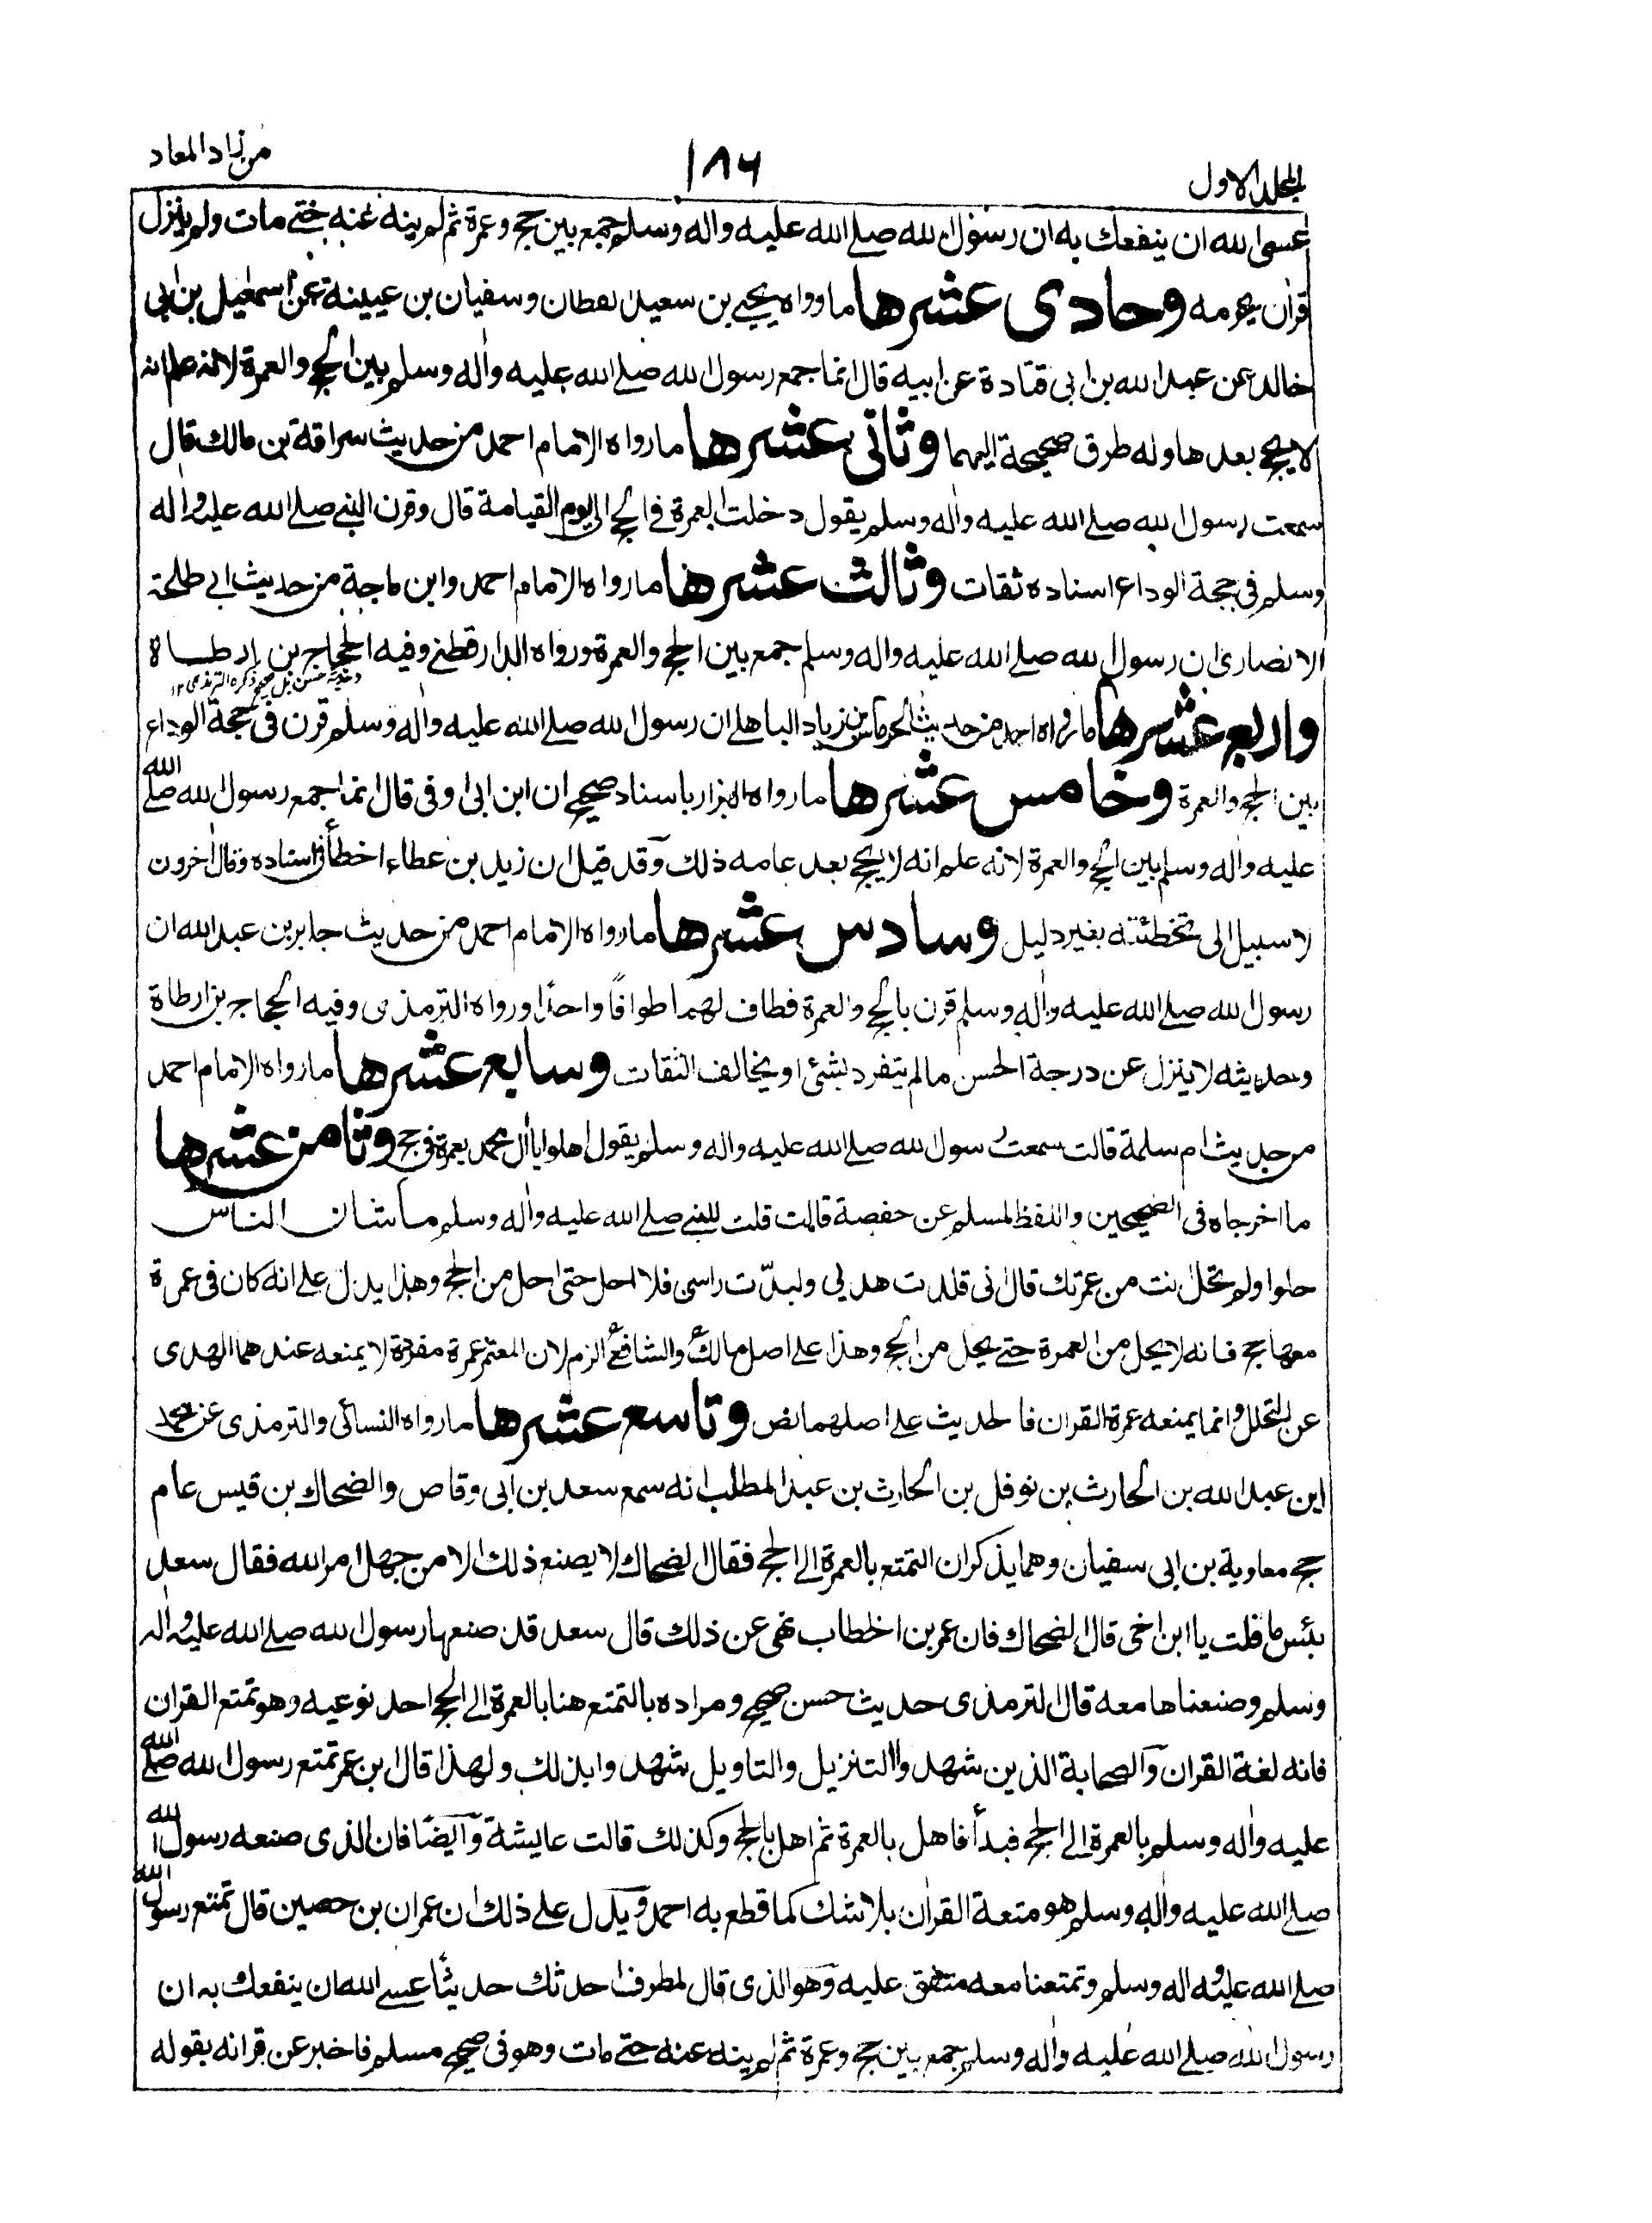 المجلد الاول
١٨٦
من زاد المعاد
عسى الله ان ينفعك به ان رسول الله صلے الله عليه واله وسلم جمع بين حج وعمرة ثم لم ينه عنه حتے مات ولم ينزل
قران يحرمه وحادى عشرها ما رواه يحيے بن سعيد القطان وسفيان بن عيينة عن اسمعيل بن ابى
خالد عن عبد الله بن ابى قتادة عن ابيه قال انما جمع رسول الله صلے الله عليه واٰله وسلم بين الحج والعمرة لانه علم انه
لا يحج بعدها وله طرق صحيحة اليهما وثانى عشرها ما رواه الامام احمد من حديث سراقة بن مالك قال
سمعت رسول الله صلے الله عليه واٰله وسلم يقول دخلت العمرة فى الحج الى يوم القيامة قال وقرن النبے صلے الله عليه واٰله
وسلم فى حجة الوداع اسناده ثقات وثالث عشرها ما رواه الامام احمد وابن ماجة من حديث ابے طلحة
الانصارى ان رسول الله صلے الله عليه واله وسلم جمع بين الحج والعمرة ورواه الدارقطنے وفيه الحجاج بن ارطاة
وحديثه حسن بل صحيح ذكره الترمذى ١٢
واربع عشرها ما رواه احمد من حديث الهرماس بن زياد الباهلے ان رسول الله صلے الله عليه واٰله وسلم قرن فى حجة الوداع
بين الحج والعمرة وخامس عشرها ما رواه البزار باسناد صحيح ان ابن ابى اوفى قال انما جمع رسول الله صلے الله
عليه واٰله وسلم بين الحج والعمرة لانه علم انه لا يحج بعد عامه ذلك وقد قيل ان زيد بن عطاء اخطأ فى اسناده وقال اٰخرون
لا سبيل الى تخطئته بغير دليل وسادس عشرها ما رواه الامام احمد من حديث جابر بن عبد الله ان
رسول الله صلے الله عليه واٰله وسلم قرن بالحج والعمرة فطاف لهما طوافًا واحدًا ورواه الترمذى وفيه الحجاج بن ارطاة
وحديثه لا ينزل عن درجة الحسن ما لم يتفرد بشئ او يخالف الثقات وسابع عشرها ما رواه الامام احمد
من حديث ام سلمة قالت سمعت رسول الله صلے الله عليه واله وسلم يقول اهلوا يا اٰل محمد بعمرة فى حج وثامن عشرها
ما اخرجاه فى الصحيحين واللفظ لمسلم عن حفصة قالت قلت للنبے صلے الله عليه واٰله وسلم ما شان الناس
حلوا ولم تحل انت من عمرتك قال انى قلدت هديى ولبدّت راسى فلا احل حتى احل من الحج وهذا يدل علے انه كان فى عمرة
معها حج فانه لا يحل من العمرة حتے يحل من الحج وهذا علے اصل مالك والشافعى الزم لان المعتمر عمرة مفردة لا يمنعه عندهما الهدى
عن التحلل وانما يمنعه عمرة القران فالحديث علے اصلهما نص وتاسع عشرها ما رواه النسائى والترمذى عن محمد
ابن عبد الله بن الحارث بن نوفل بن الحارث بن عبد المطلب انه سمع سعد بن ابى وقاص والضحاك بن قيس عام
حج معاوية بن ابى سفيان وهما يذكران التمتع بالعمرة الے الحج فقال الضحاك لا يصنع ذلك الا من جهل امر الله فقال سعد
بئس ما قلت يا ابن اخى قال الضحاك فان عمر بن الخطاب نهى عن ذلك قال سعد قد صنعها رسول الله صلے الله عليه واٰله
وسلم وصنعناها معه قال الترمذى حديث حسن صحيح ومراده بالتمتع هنا بالعمرة الے الحج احد نوعيه وهو تمتع القران
فانه لغة القران والصحابة الذين شهدوا التنزيل والتاويل شهدوا بذلك ولهذا قال ابن عمر تمتع رسول الله صلے الله
عليه واٰله وسلم بالعمرة الے الحج فبدأ فاهل بالعمرة ثم اهل بالحج وكذلك قالت عايشة وايضًا فان الذى صنعه رسول الله
صلے الله عليه واٰله وسلم هو متعة القران بلا شك كما قطع به احمد ويدل علے ذلك ان عمران بن حصين قال تمتع رسول الله
صلے الله عليه واله وسلم وتمتعنا معه متفق عليه وهو الذى قال لمطرف احدثك حديثًا عسے الله ان ينفعك به ان
رسول الله صلے الله عليه واٰله وسلم جمع بين حج وعمرة ثم لم ينه عنه حتے مات وهو فى صحيح مسلم فاخبر عن قرانه بقوله